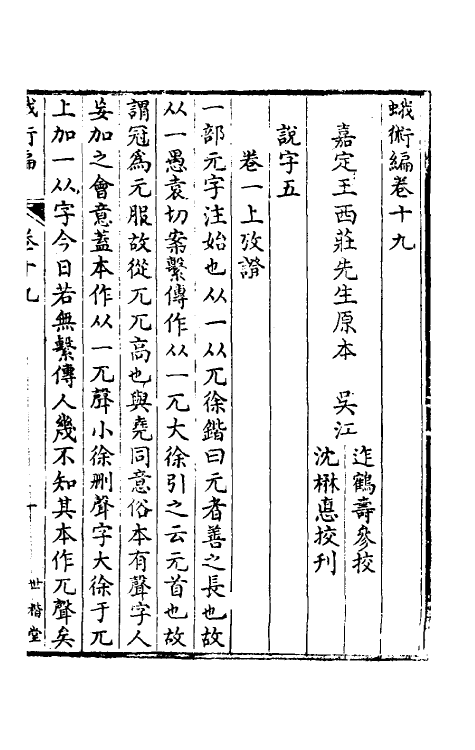 蛾術編卷十九
嘉定王西莊先生原本　吳江
迮鶴壽參挍
沈楙悳挍刊
說字五
卷一上攷證
一部元字注始也从一从兀徐鍇曰元者善之長也故
从一愚袁切案繫傳作从一兀大徐引之云元首也故
謂冠爲元服故從兀兀高也與堯同意俗本有聲字人
妄加之會意蓋本作从一兀聲小徐刪聲字大徐于兀
上加一从字今日若無繫傳人幾不知其本作兀聲矣
蛾術編
卷十九
一
世楷堂